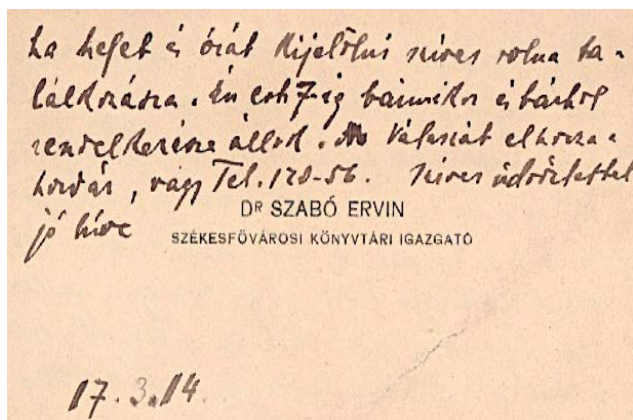 ha helyet és órát kijelölni szíves volna ta-
lálkozásra. Én este 7-ig bármikor és bárhol
rendelkezésre állok. Válaszát elhozza a
hordár, vagy Tel. 120-56. Szíves üdvözlettel
DR SZABÓ ERVIN
jó híve
SZÉKESFŐVÁROSI KÖNYVTÁRI IGAZGATÓ
17.3.14.